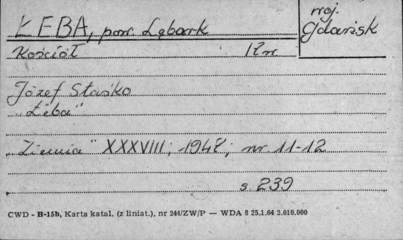 ŁEBA, pow. Lębork
woj. Gdańsk
Kościół
Józef Staśko
„Łeba"
„Ziemia" XXXVIII, 1948, nr 11-12
s. 239
CWD - B-15b, Karta katal. (z liniat.), nr 244/ZW/P — WDA 8 25.1.64 2.010.000